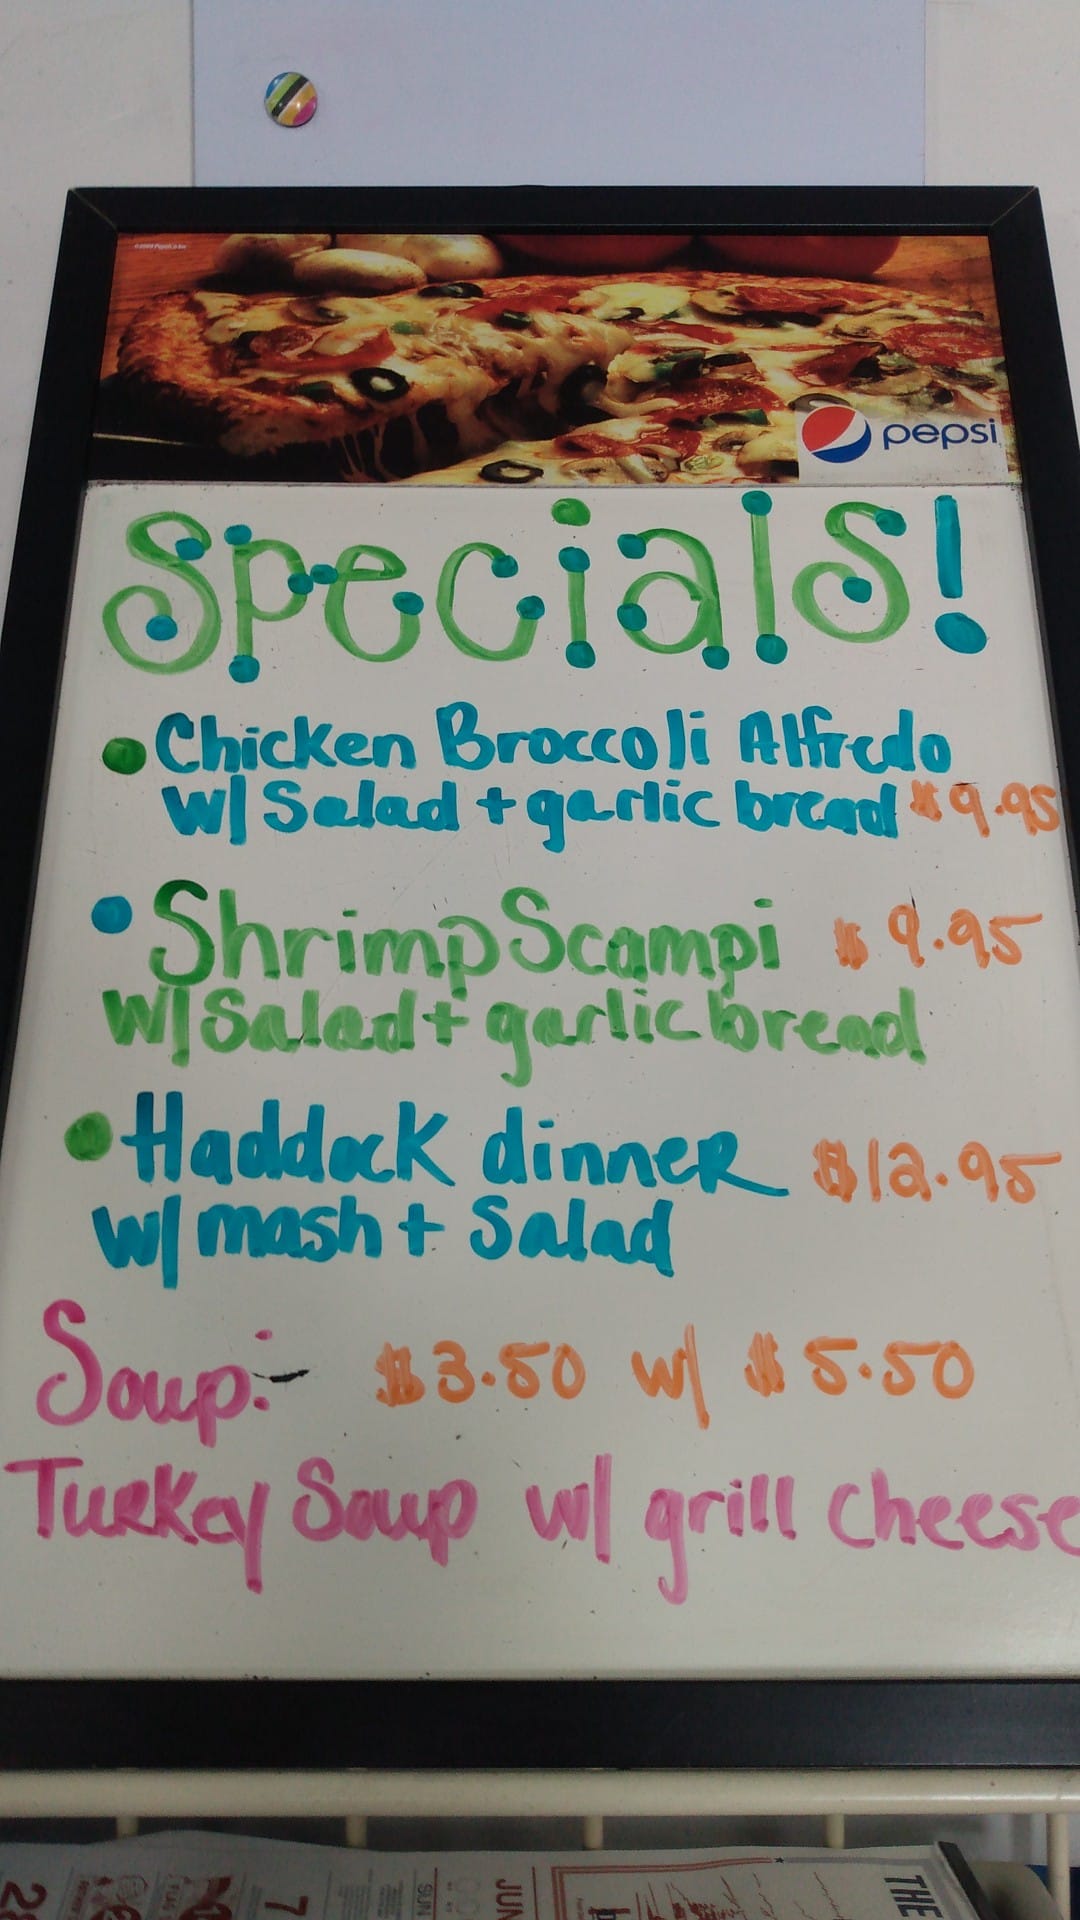 pepsi
Specials!
Chicken Broccoli Alfredo
w/ Salad + garlic bread $9.95
Shrimp Scampi $9.95
w/ Salad + garlic bread
Haddock dinner $12.95
w/ mash + Salad
Soup: $3.50 w/ $5.50
Turkey Soup w/ grill cheese
THE
JUN
SUN
7